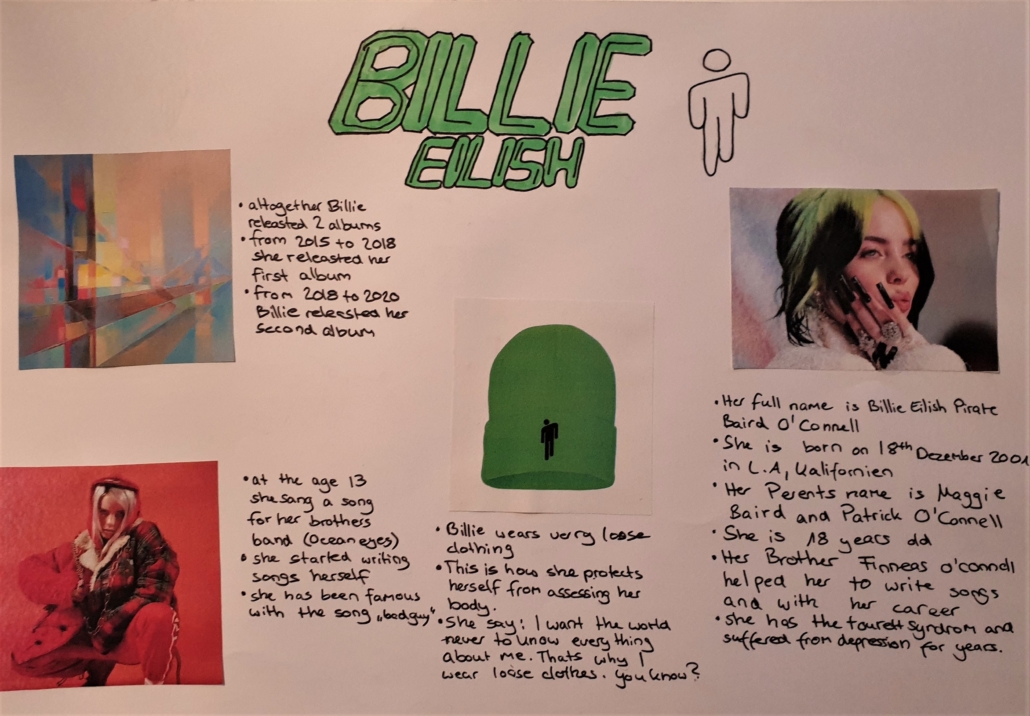 BILLIE
EILISH
• altogether Billie
releasted 2 albums
• from 2015 to 2018
she released her
first album
• from 2018 to 2020
Billie releasted her
second album
• at the age 13
she sang a song
for her brothers
band (Ocean eyes)
• she started writing
songs herself
• she has been famous
with the song „badguy“
• Billie wears very loose
clothing
• This is how she protects
herself from assessing her
body.
• She say: I want the world
never to know everything
about me. Thats why I
wear loose clothes. you know?
• Her full name is Billie Eilish Pirate
Baird O'Connell
• She is born on 18th Dezember 2001
in L.A, Kalifornien
• Her Perents name is Maggie
Baird and Patrick O'Connell
• She is 18 years old
• Her Brother Finneas O'connell
helped her to write songs
and with her career
• she has the tourett syndrom and
suffered from depression for years.